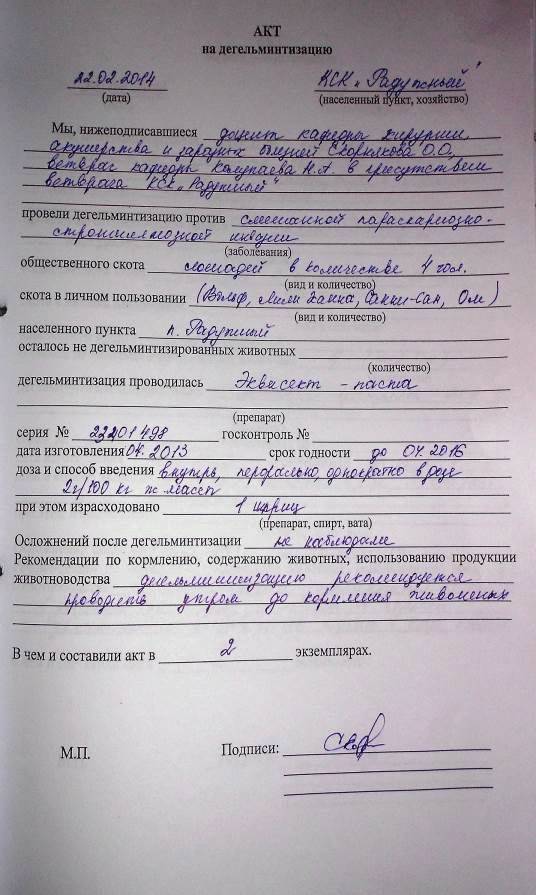 АКТ
на дегельминтизацию
22.02.2014 КСК „Радужный"
(дата) (населенный пункт, хозяйство)
Мы, нижеподписавшиеся доцент кафедры хирургии,
акушерства и заразных болезней Скорнякова О.О.
ветврач кафедры Колупаева Н.А. в присутствии
ветврача КСК „Радужный"
провели дегельминтизацию против смешанной параскариозно-
стронгилятозной инвазии
(заболевания)
общественного скота лошадей в количестве 4 гол.
(вид и количество)
скота в личном пользовании (Вольф, Лили Ханна, Санни-Сан, Ом)
(вид и количество)
населенного пункта п. Радужный
осталось не дегельминтизированных животных
(количество)
дегельминтизация проводилась Эквисект - паста
(препарат)
серия № 22201498 госконтроль №
дата изготовления 04.2013 срок годности до 04.2016
доза и способ введения внутрь, перорально, однократно в дозе
2г/100 кг ж. массы
при этом израсходовано 1 шприц
(препарат, спирт, вата)
Осложнений после дегельминтизации не наблюдали
Рекомендации по кормлению, содержанию животных, использованию продукции
животноводства дегельминтизацию рекомендуется
проводить утром до кормления животных
В чем и составили акт в 2 экземплярах.
М.П. Подписи: